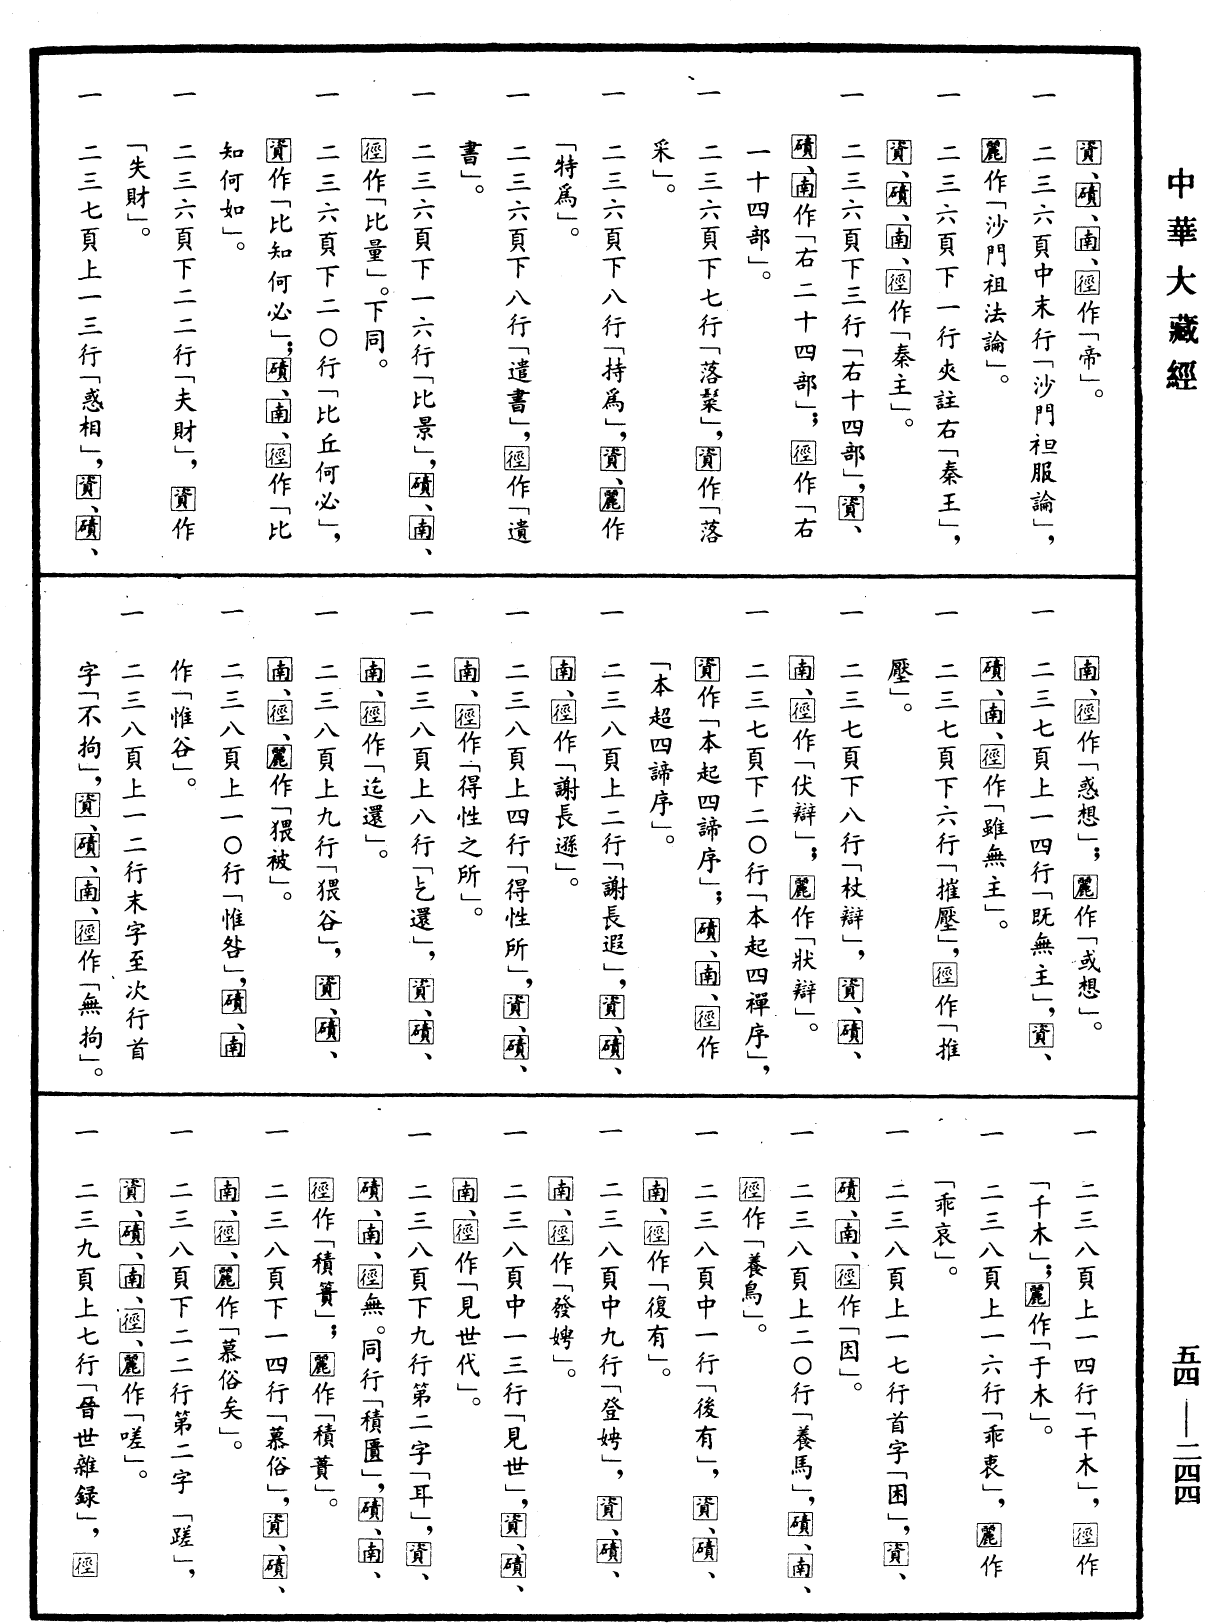 中華大藏經
資、磧、南、徑作「帝」。
一 二三六頁中末行「沙門袒服論」，
麗作「沙門祖法論」。
一 二三六頁下一行夾註右「秦王」，
資、磧、南、徑作「秦主」。
一 二三六頁下三行「右十四部」，資、
磧、南作「右二十四部」；徑作「右
一十四部」。
一 二三六頁下七行「落髮」，資作「落
采」。
一 二三六頁下八行「持爲」，資、麗作
「特爲」。
一 二三六頁下八行「遣書」，徑作「遺
書」。
一 二三六頁下一六行「比景」，磧、南、
徑作「比量」。下同。
一 二三六頁下二〇行「比丘何必」，
資作「比知何必」；磧、南、徑作「比
知何如」。
一 二三六頁下二二行「夫財」，資作
「失財」。
一 二三七頁上一三行「惑相」，資、磧、
南、徑作「惑想」；麗作「或想」。
一 二三七頁上一四行「既無主」，資、
磧、南、徑作「雖無主」。
一 二三七頁下六行「摧壓」，徑作「推
壓」。
一 二三七頁下八行「杖辯」，資、磧、
南、徑作「伏辯」；麗作「狀辯」。
一 二三七頁下二〇行「本起四禪序」，
資作「本起四諦序」；磧、南、徑作
「本超四諦序」。
一 二三八頁上二行「謝長遐」，資、磧、
南、徑作「謝長遜」。
一 二三八頁上四行「得性所」，資、磧、
南、徑作「得性之所」。
一 二三八頁上八行「乞還」，資、磧、
南、徑作「迄還」。
一 二三八頁上九行「猥谷」，資、磧、
南、徑、麗作「猥被」。
一 二三八頁上一〇行「惟咎」，磧、南
作「惟谷」。
一 二三八頁上一二行末字至次行首
字「不拘」，資、磧、南、徑作「無拘」。
一 二三八頁上一四行「干木」，徑作
「千木」；麗作「于木」。
一 二三八頁上一六行「乖衷」，麗作
「乖哀」。
一 二三八頁上一七行首字「困」，資、
磧、南、徑作「因」。
一 二三八頁上二〇行「養馬」，磧、南、
徑作「養鳥」。
一 二三八頁中一行「後有」，資、磧、
南、徑作「復有」。
一 二三八頁中九行「登娉」，資、磧、
南、徑作「發娉」。
一 二三八頁中一三行「見世」，資、磧、
南、徑作「見世代」。
一 二三八頁下九行第二字「耳」，資、
磧、南、徑無。同行「積匱」，磧、南、
徑作「積簣」；麗作「積蕢」。
一 二三八頁下一四行「慕俗」，資、磧、
南、徑、麗作「慕俗矣」。
一 二三八頁下二二行第二字「蹉」，
資、磧、南、徑、麗作「嗟」。
一 二三九頁上七行「晉世雜録」，徑
五四——二四四